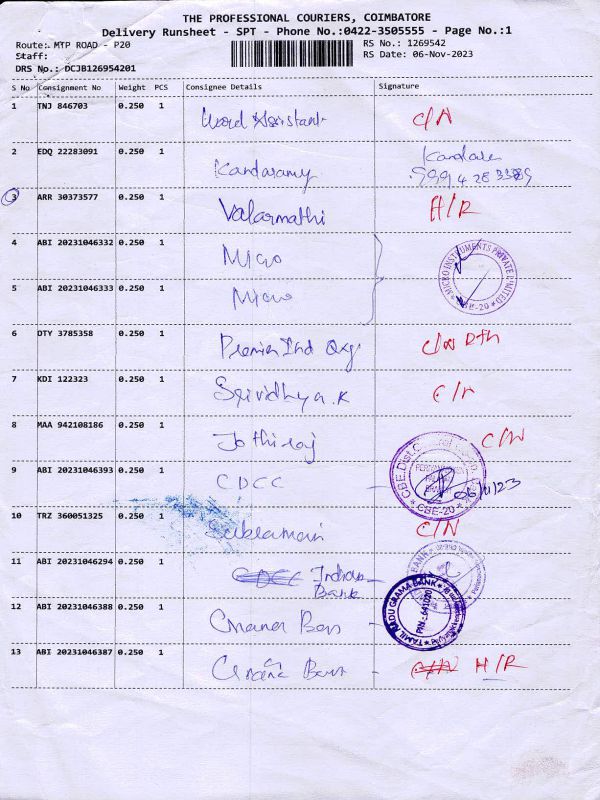 THE PROFESSIONAL COURIERS, COIMBATORE
Delivery Runsheet - SPT - Phone No.:0422-3505555 - Page No.:1
Route: MTP ROAD - P20
RS No.: 1269542
Staff:
RS Date: 06-Nov-2023
DRS No.: DCJB126954201
S No Consignment No Weight PCS Consignee Details Signature
1 TNJ 846703 0.250 1 Word Assistant C/N
2 EDQ 22283091 0.250 1 Kandasamy
3 ARR 30373577 0.250 1 Valarmathi H/R
4 ABI 20231046332 0.250 1 Micro
MICRO INSTRUMENTS PRIVATE LIMITED
CBE-20
5 ABI 20231046333 0.250 1 Micro
6 DTY 3785358 0.250 1 Premier Ind
7 KDI 122323 0.250 1 Srividhya.K C/N
8 MAA 942108186 0.250 1 Jothiraj C/N
9 ABI 20231046393 0.250 1 CDCC
CBE-20
06/11/23
10 TRZ 360051325 0.250 1 C/N
11 ABI 20231046294 0.250 1 CDCC Indian
Bank
12 ABI 20231046388 0.250 1
TAMIL NADU GRAMA BANK
PIN: 641020
13 ABI 20231046387 0.250 1 C/N H/R